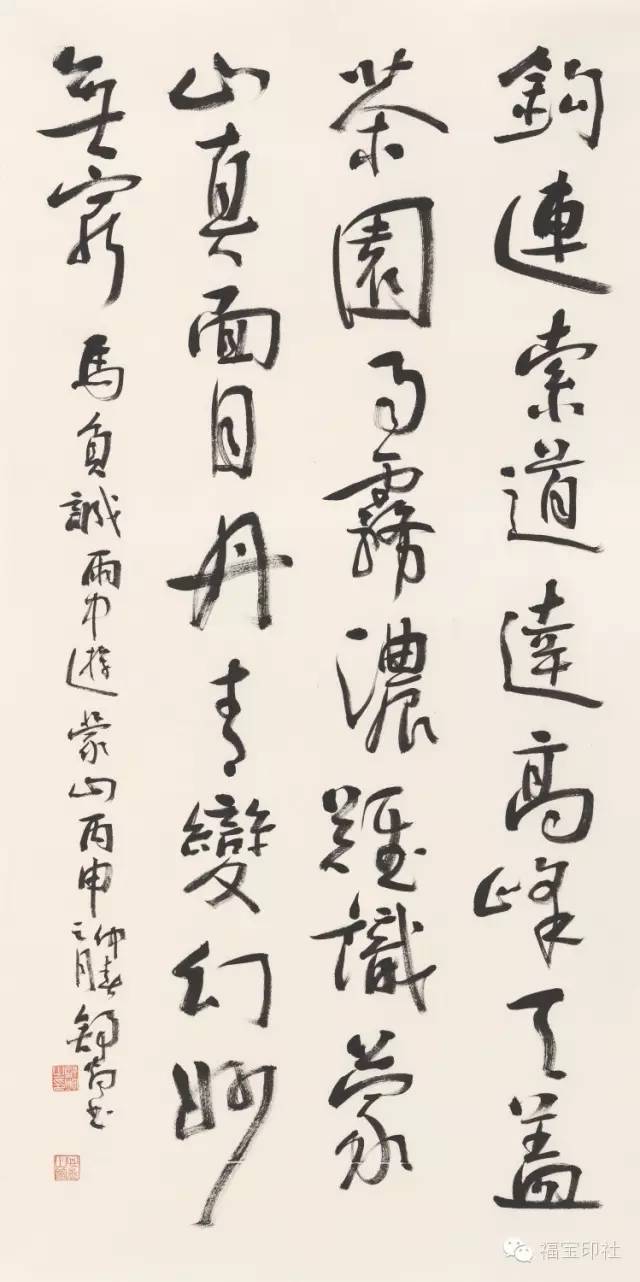 鈎連索道達高峰天蓋
茶園雨霧濃難識蒙
山真面目丹青變幻妙
無窮 馬負誠雨中遊蒙山丙申仲春之月書
福宝印社